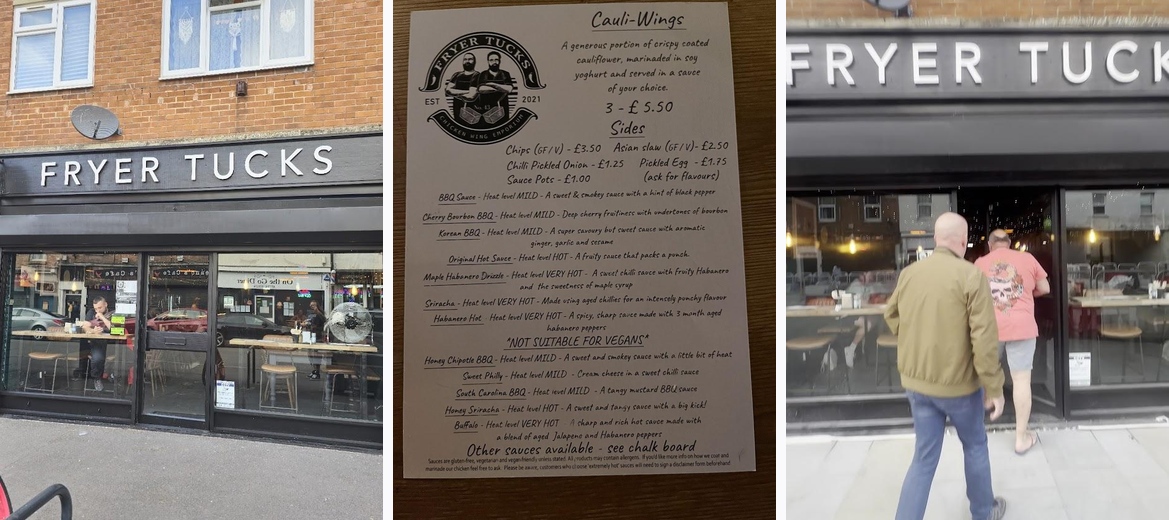 FRYER TUCKS
FRYER TUCKS
EST 2021
CHICKEN WING EMPORIUM
Cauli-Wings
A generous portion of crispy coated
cauliflower, marinaded in soy
yoghurt and served in a sauce
of your choice.
3 - £5.50
Sides
Chips (GF/V) - £3.50 Asian slaw (GF/V) - £2.50
Chilli Pickled Onion - £1.25 Pickled Egg - £1.75
Sauce Pots - £1.00 (ask for flavours)
BBQ Sauce - Heat level MILD - A sweet & smokey sauce with a hint of black pepper
Cherry Bourbon BBQ - Heat level MILD - Deep cherry fruitiness with undertones of bourbon
Korean BBQ - Heat level MILD - A super savoury but sweet sauce with aromatic
ginger, garlic and sesame
Original Hot Sauce - Heat level HOT - A fruity sauce that packs a punch.
Maple Habanero Drizzle - Heat level VERY HOT - A sweet chilli sauce with fruity Habanero
and the sweetness of maple syrup
Sriracha - Heat level VERY HOT - Made using aged chillies for an intensely punchy flavour
Habanero Hot Heat level VERY HOT - A spicy, sharp sauce made with 3 month aged
habanero peppers
*NOT SUITABLE FOR VEGANS*
Honey Chipotle BBQ - Heat level MILD - A sweet and smokey sauce with a little bit of heat
Sweet Philly - Heat level MILD - Cream cheese in a sweet chilli sauce
South Carolina BBQ - Heat level MILD - A tangy mustard BBQ sauce
Honey Sriracha - Heat level HOT - A sweet and tangy sauce with a big kick!
Buffalo - Heat level VERY HOT A sharp and rich hot sauce made with
a blend of aged Jalapeno and Habanero peppers
Other sauces available - see chalk board
Sauces are gluten-free, vegetarian and vegan-friendly unless stated. All products may contain allergens. If you'd like more info on how we coat and
marinade our chicken feel free to ask. Please be aware, customers who choose 'extremely hot' sauces will need to sign a disclaimer form beforehand
FRYER TUCK